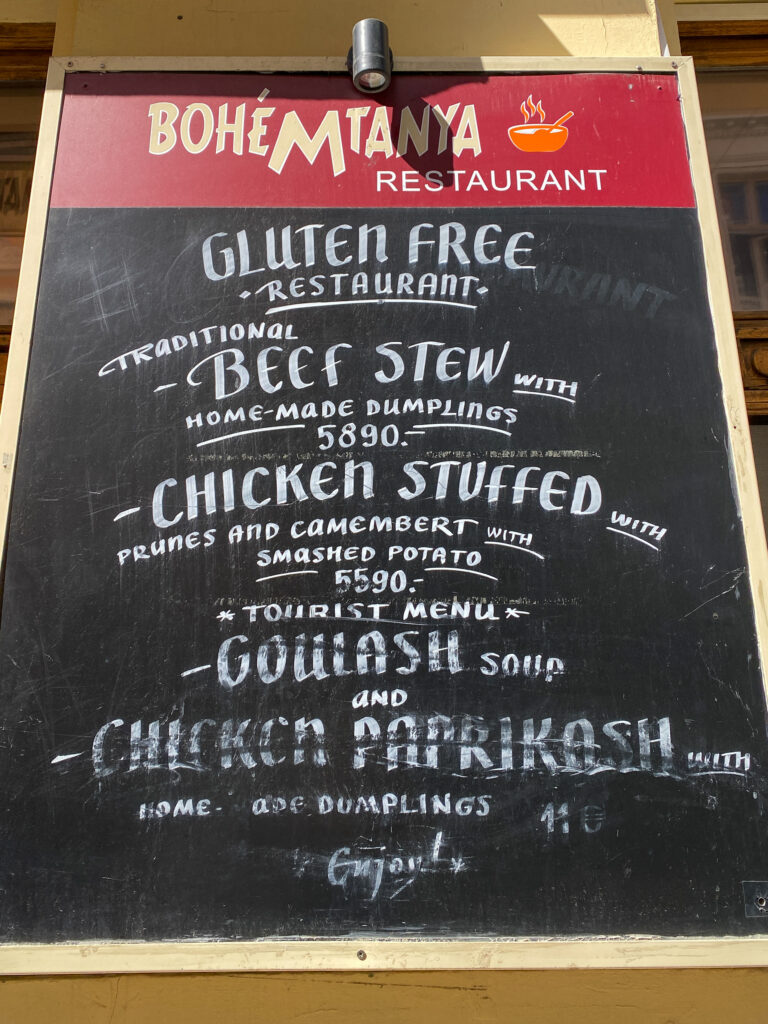 BOHÉMTANYA
RESTAURANT
GLUTEN FREE
·RESTAURANT·
TRADITIONAL
- BEEF STEW WITH
HOME-MADE DUMPLINGS
5890.-
- CHICKEN STUFFED WITH
PRUNES AND CAMEMBERT WITH
SMASHED POTATO
5590.-
* TOURIST MENU *
- GOULASH SOUP
AND
- CHICKEN PAPRIKASH WITH
HOME- ADE DUMPLINGS 11 €
Enjoy!